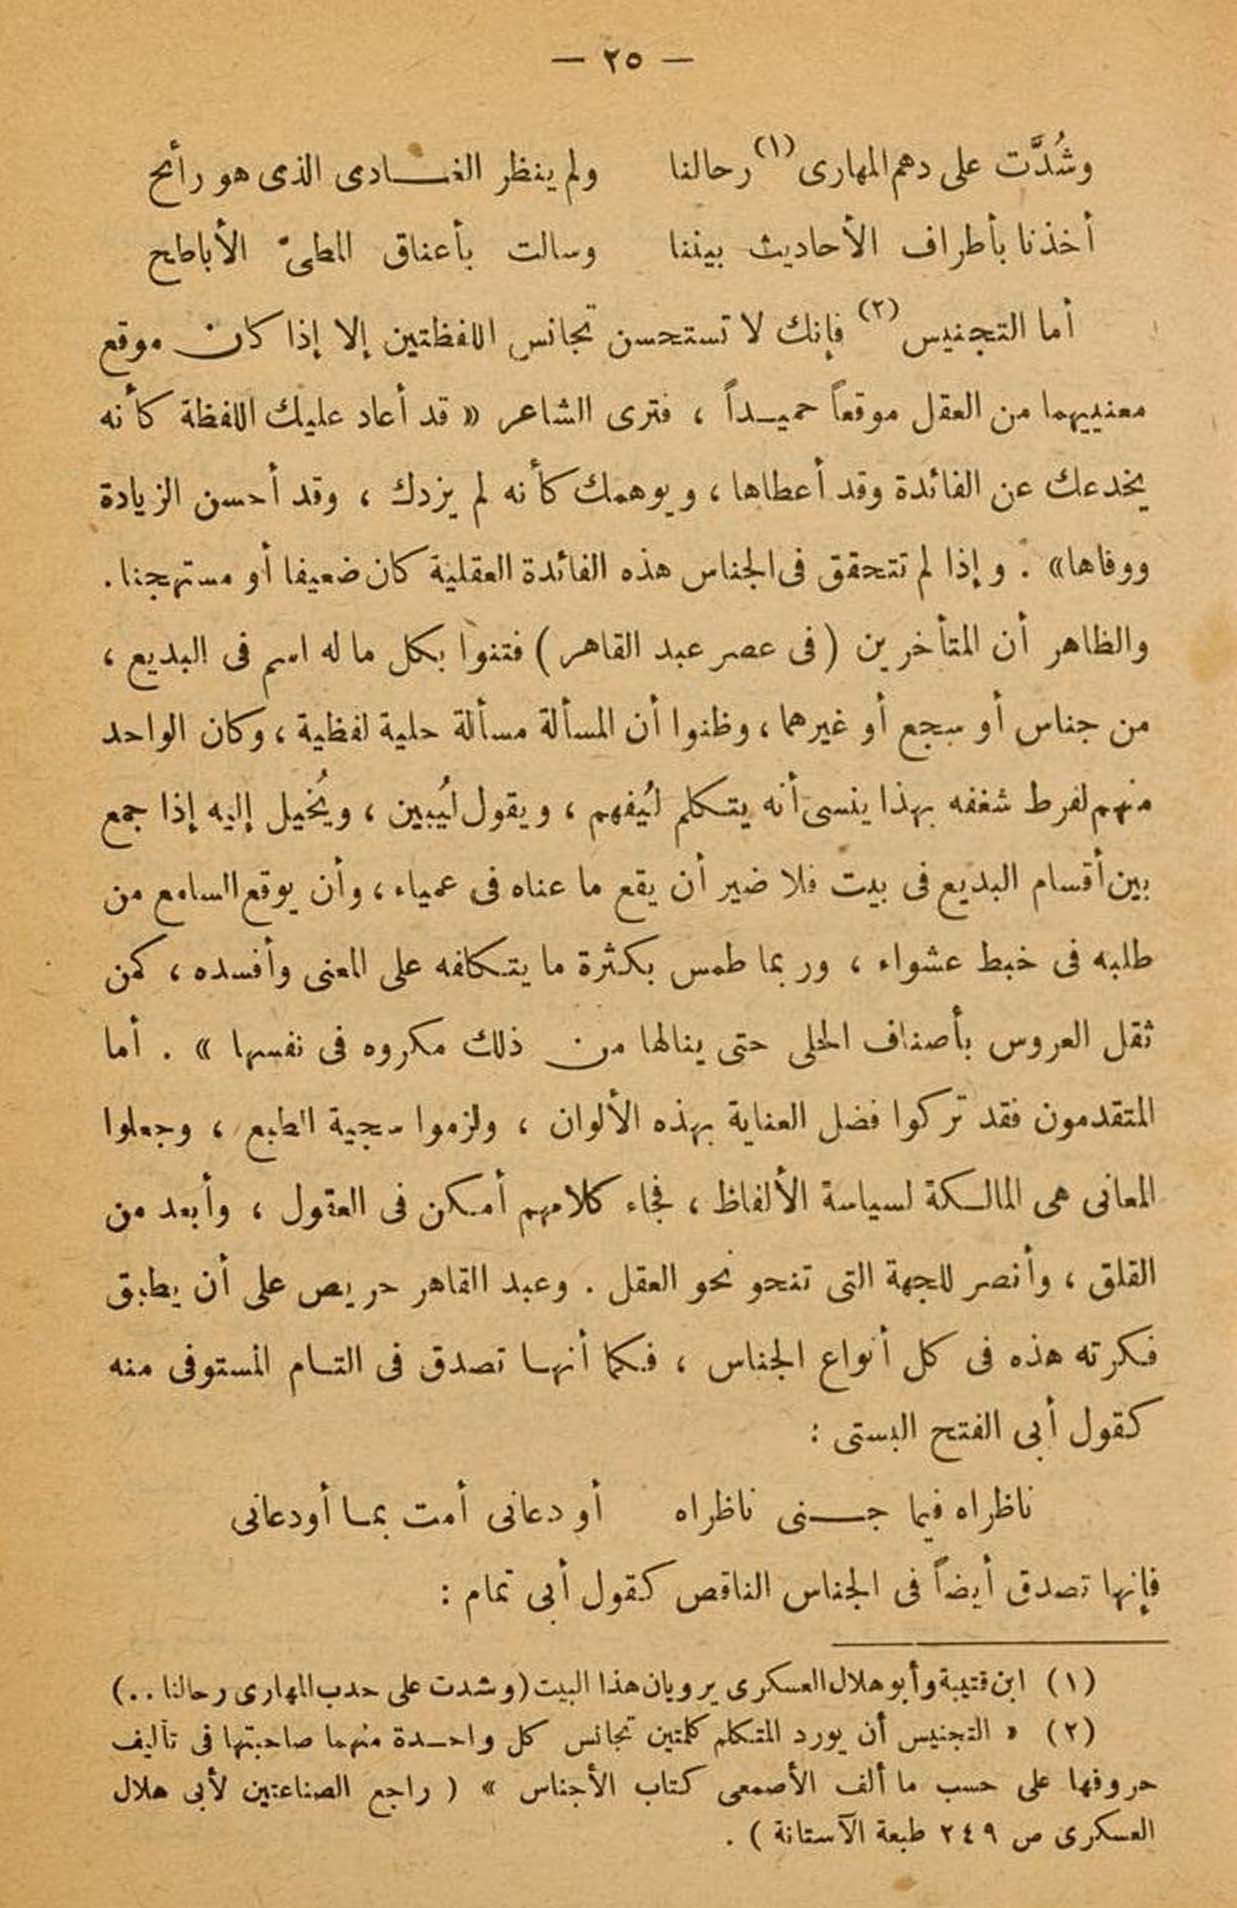 — ٢٥ —
وشُدَّت على دهم المهارى (١) رحالنا ولم ينظر الغادى الذى هو رأئح
أخذنا بأطراف الأحاديث بيننا وسالت بأعناق المطىّ الأباطح
أما التجنيس (٢) فإنك لا تستحسن تجانس اللفظتين إلا إذا كان موقع
معنييهما من العقل موقعاً حميداً ، فترى الشاعر « قد أعاد عليك اللفظة كأنه
يخدعك عن الفائدة وقد أعطاها ، ويوهمك كأنه لم يزدك ، وقد أحسن الزيادة
ووفاها » . وإذا لم تتحقق فى الجناس هذه الفائدة العقلية كان ضعيفا أو مستهجنا .
والظاهر أن المتأخرين ( فى عصر عبد القاهر ) فتنوا بكل ما له اسم فى البديع ،
من جناس أو سجع أو غيرهما ، وظنوا أن المسألة مسألة حلية لفظية ، وكان الواحد
منهم لفرط شغفه بهذا ينسى أنه يتكلم ليُفهم ، ويقول ليُبين ، ويُخيل إليه إذا جمع
بين أقسام البديع فى بيت فلا ضير أن يقع ما عناه فى عمياء ، وأن يوقع السامع من
طلبه فى خبط عشواء ، وربما طمس بكثرة ما يتكلفه على المعنى وأفسده ، كمن
ثقل العروس بأصناف الحلى حتى ينالها من ذلك مكروه فى نفسها » . أما
المتقدمون فقد تركوا فضل العناية بهذه الألوان ، ولزموا سجية الطبع ، وجعلوا
المعانى هى المالكة لسياسة الألفاظ ، فجاء كلامهم أمكن فى العقول ، وأبعد من
القلق ، وأنصر للجهة التى تنحو نحو العقل . وعبد القاهر حريص على أن يطبق
فكرته هذه فى كل أنواع الجناس ، فكما أنها تصدق فى التام المستوفى منه
كقول أبى الفتح البستى :
ناظراه فيما جنى ناظراه أو دعانى أمت بما أودعانى
فإنها تصدق أيضاً فى الجناس الناقص كقول أبى تمام :
(١) ابن قتيبة وأبو هلال العسكرى يرويان هذا البيت (وشدت على حدب المهارى رحالنا ..)
(٢) « التجنيس أن يورد المتكلم كلمتين تجانس كل واحدة منهما صاحبتها فى تأليف
حروفها على حسب ما ألف الأصمعى كتاب الأجناس » ( راجع الصناعتين لأبى هلال
العسكرى ص ٢٤٩ طبعة الآستانة ) .